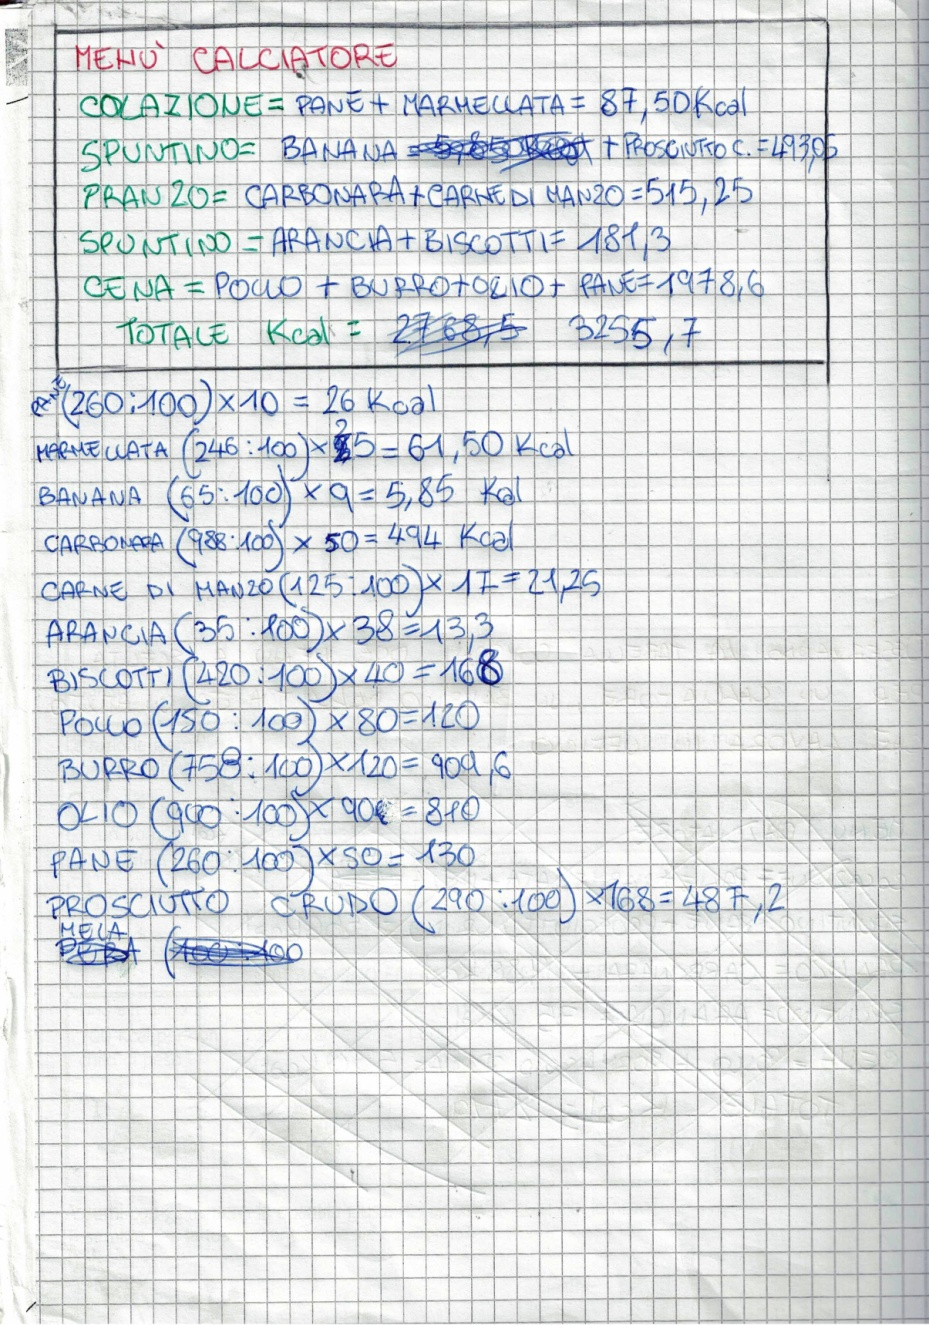 MENÙ CALCIATORE
COLAZIONE= PANE + MARMELLATA= 87,50 Kcal
SPUNTINO= BANANA + PROSCIUTTO C. =493,05
PRANZO= CARBONARA+CARNE DI MANZO=515,25
SPUNTINO =ARANCIA+BISCOTTI= 181,3
CENA = POLLO + BURRO+OLIO+ PANE=1978,6
TOTALE Kcal = 2768,5 3255,7
PANE (260:100)×10 = 26 Kcal
MARMELLATA (246:100)×25=61,50 Kcal
BANANA (65:100) ×9=5,85 Kal
CARBONARA (988:100) × 50=494 Kcal
CARNE DI MANZO(125:100)×17=21,25
ARANCIA (35:100)×38=13,3
BISCOTTI (420:100)×40=168
POLLO (150:100) ×80=120
BURRO (758:100)×120= 909,6
OLIO (900:100)×90 =810
PANE (260:100)×50= 130
PROSCIUTTO CRUDO (290:100)×168=487,2
MELA
PERA (100:100